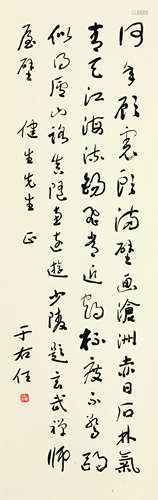 何年顧虎頭滿壁画滄洲赤日石林氣
青天江海流錫飛常近鶴杯度不驚鷗
似得廬山路真隨惠遠遊少陵題玄武禅師
屋壁 健生先生正
于右任